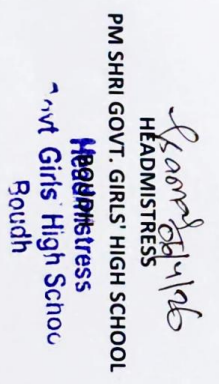 06/4/26
HEADMISTRESS
PM SHRI GOVT. GIRLS' HIGH SCHOOL
Headmistress
Govt Girls' High Schoo
Boudh